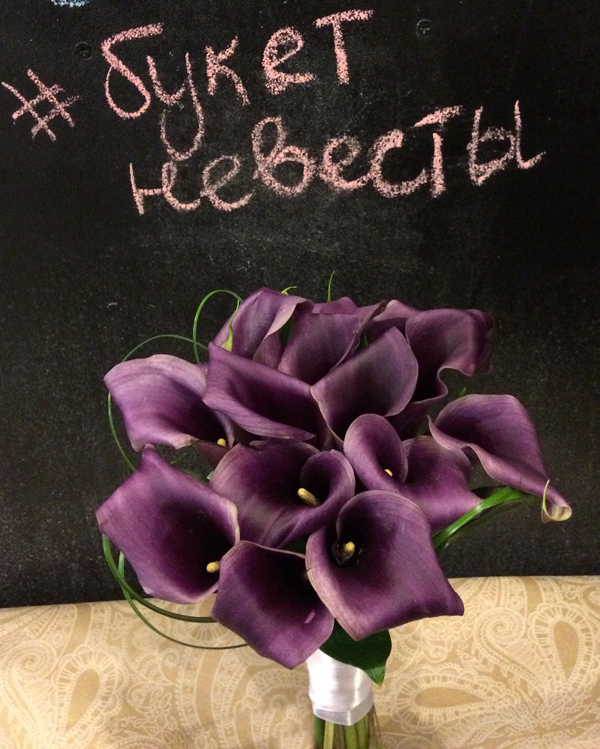 #букет
невесты